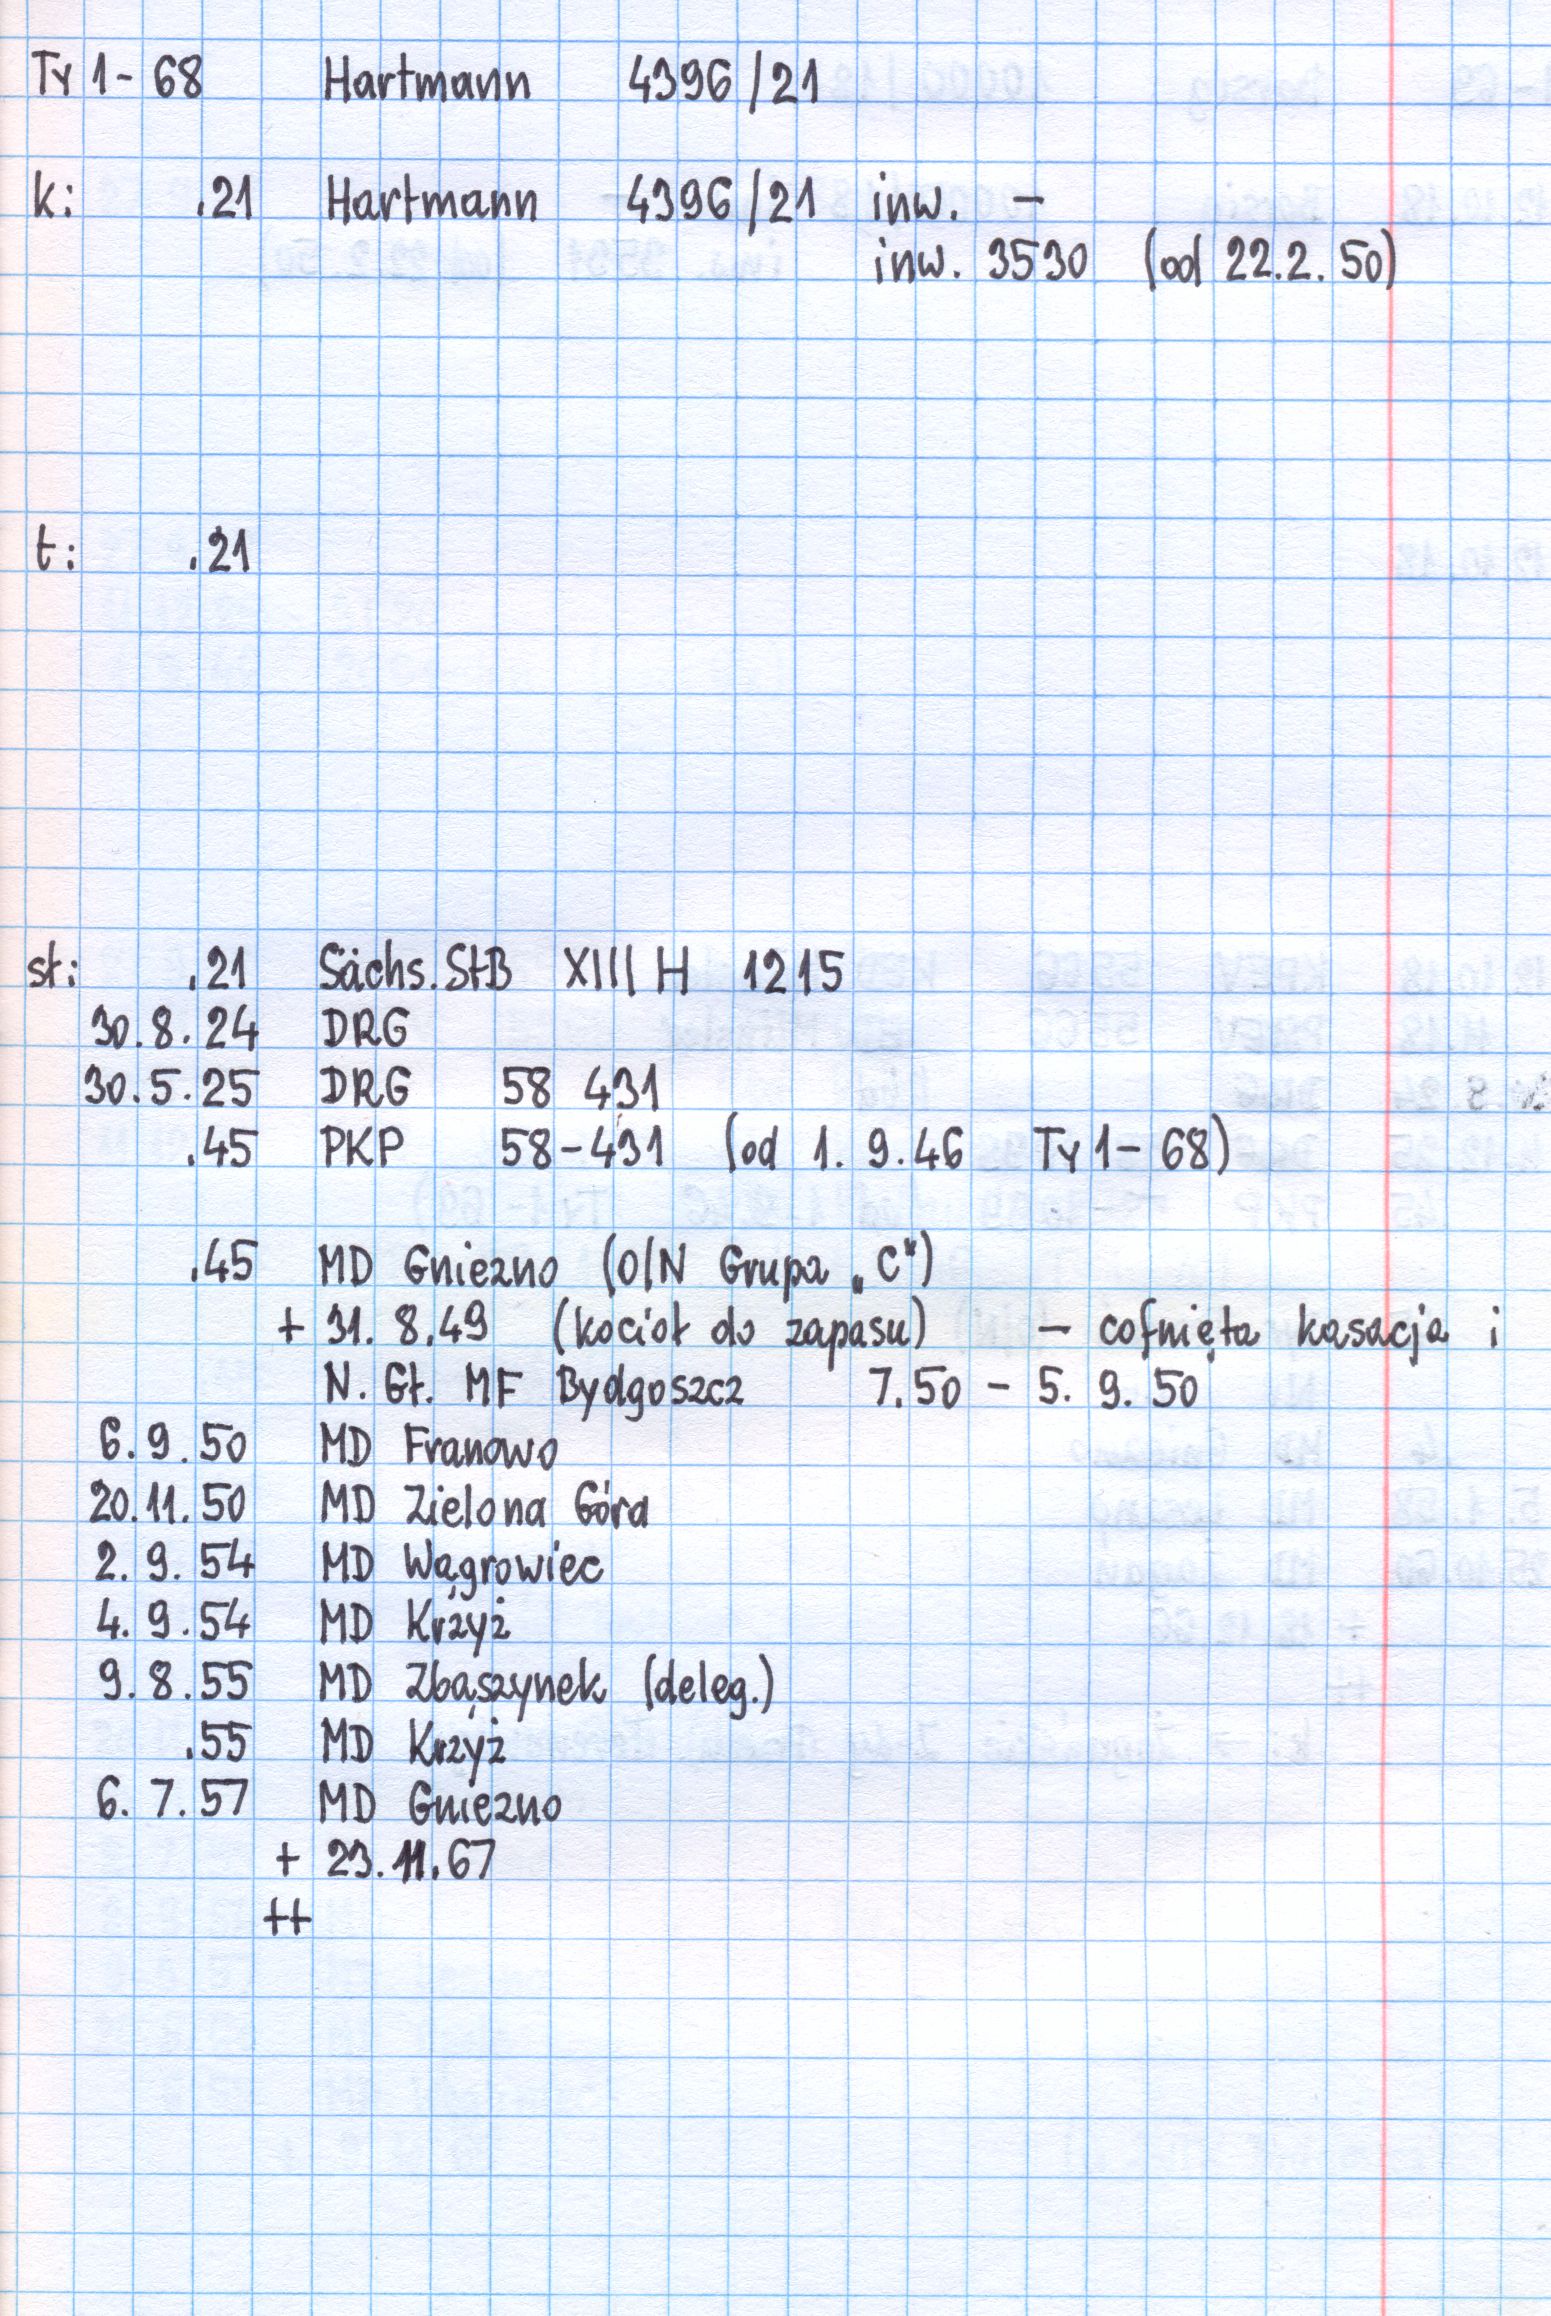 Ty 1 - 68 Hartmann 4396/21
k: .21 Hartmann 4396/21 inw. -
inw. 3530 (od 22.2.50)
t: .21
st: .21 Sächs.StB XIII H 1215
30.8.24 DRG
30.5.25 DRG 58 431
.45 PKP 58-431 (od 1.9.46 Ty 1-68)
.45 MD Gniezno (O/N Grupa „C")
+ 31.8.49 (kocioł do zapasu) - cofnięta kasacja i
N. Gł. MF Bydgoszcz 7.50 - 5.9.50
6.9.50 MD Franowo
20.11.50 MD Zielona Góra
2.9.54 MD Wągrowiec
4.9.54 MD Krzyż
9.8.55 MD Zbąszynek (deleg.)
.55 MD Krzyż
6.7.57 MD Gniezno
+ 23.11.67
++